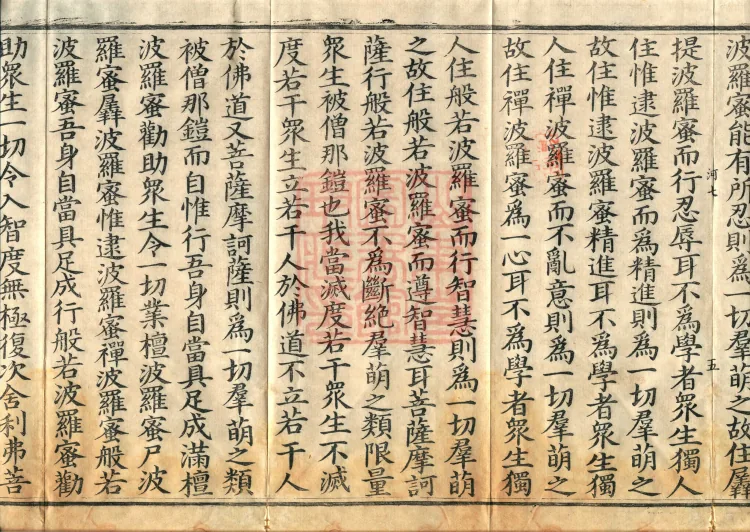 波羅蜜能有所忍則爲一切羣萌之故住羼
河七
五
提波羅蜜而行忍辱耳不爲學者衆生獨人
住惟逮波羅蜜而爲精進則爲一切羣萌之
故住惟逮波羅蜜精進耳不爲學者衆生獨
人住禪波羅蜜而不亂意則爲一切羣萌之
故住禪波羅蜜爲一心耳不爲學者衆生獨
人住般若波羅蜜而行智慧則爲一切羣萌
之故住般若波羅蜜而遵智慧耳菩薩摩訶
薩行般若波羅蜜不爲斷絕羣萌之類限量
衆生被僧那鎧也我當滅度若干衆生不滅
度若干衆生立若干人於佛道不立若干人
於佛道又菩薩摩訶薩則爲一切羣萌之類
被僧那鎧而自惟行吾身自當具足成滿檀
波羅蜜勸助衆生令一切業檀波羅蜜尸波
羅蜜羼波羅蜜惟逮波羅蜜禪波羅蜜般若
波羅蜜吾身自當具足成行般若波羅蜜勸
助衆生一切令入智度無極復次舍利弗菩